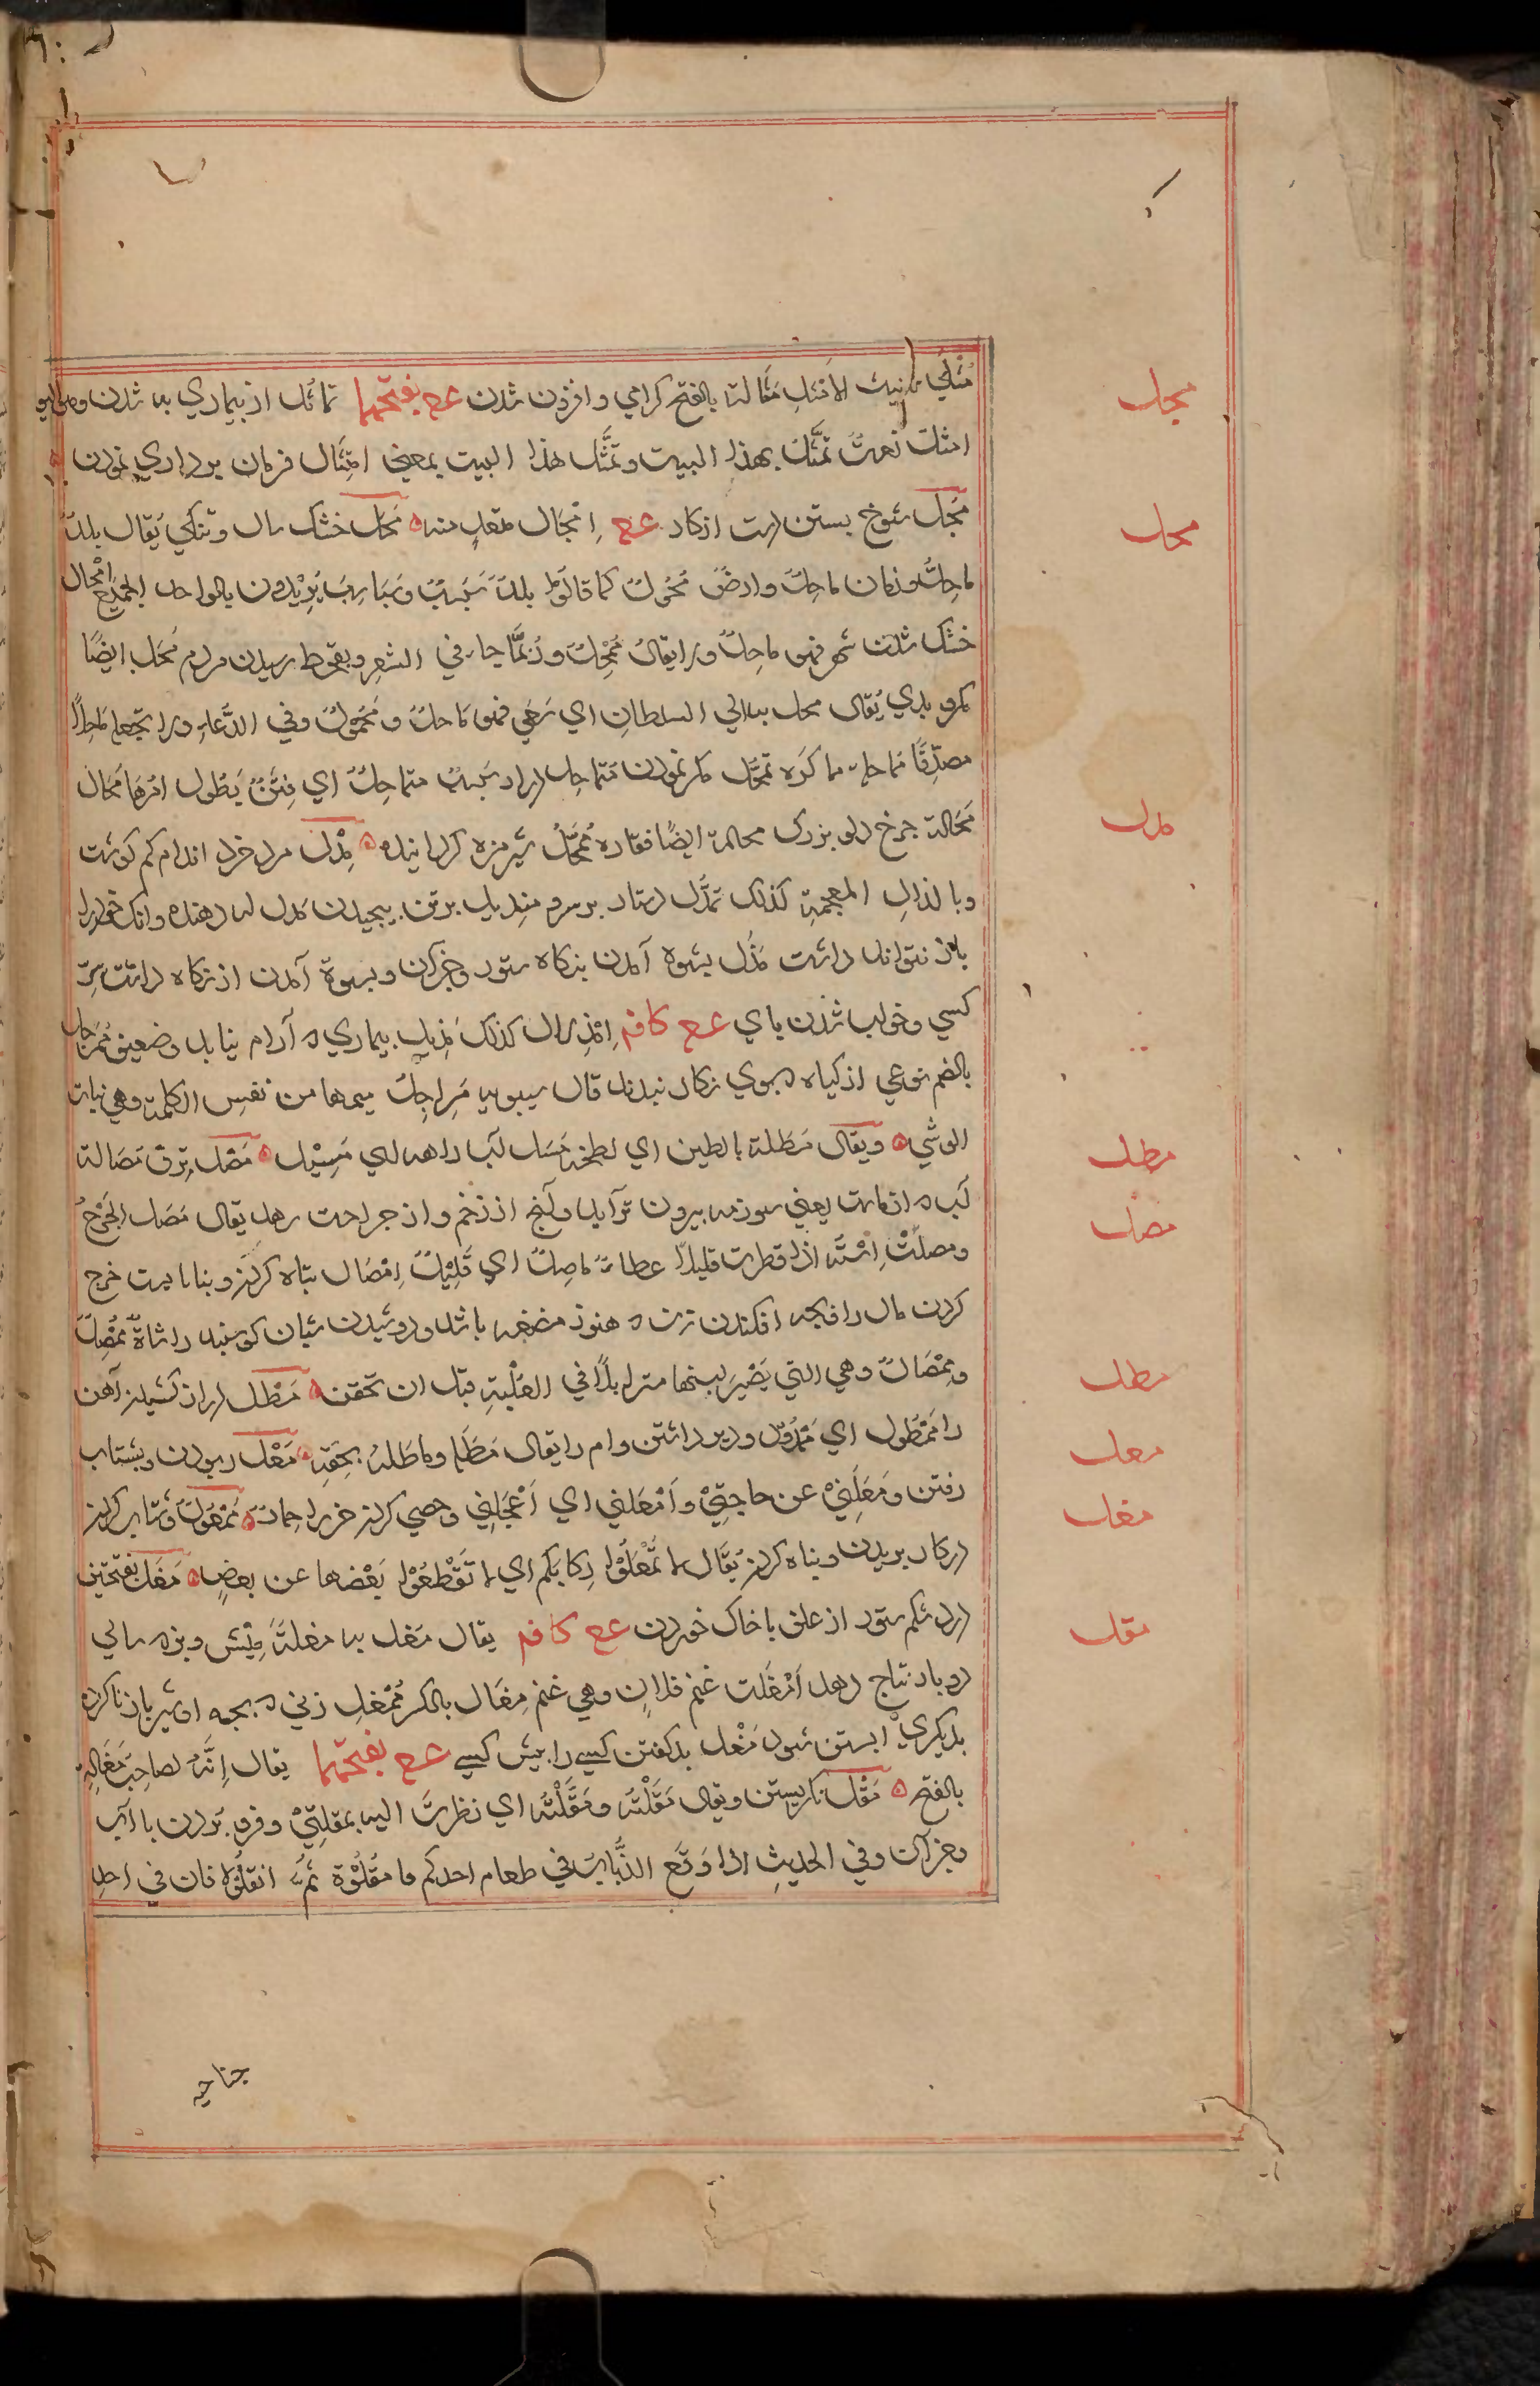 مُثلَي تانيث الامثلِ مَثالة بالفتح كرامي وافزون شدن عـ ع بفتحهما تماثل از بيماري به شدن
امثلت نعت تمثّلت بهذا البيت وتمثّلت هذا البيت بمعني امتثال فرمان برداري نمودن
مَجْل شوخ بستن دست از كار عـ ع اِمجال متعدٍ منه مَحْل خشك سال وتنكي يُقال بلدٌ
ماحِلٌ وزمان ماحِلٌ وارضٌ مُحُولٌ كما قالوا بلدٌ سَبسبٌ وسَباسِبُ يُريدون بالواحد الجمع امحال
خشك شدن شهر فهو ماحِلٌ ولا يقال مُمْحِلٌ ورُبَّما جاء في الشعر وبقحط رسيدن مردم مَحْل ايضًا
مكر وبدي يُقال محل به الي السلطان اي سَعَي فهو ماحلٌ ومَحُولٌ وفي الدُّعاء ولا تجعله ماحِلًا
مصدّقًا مماحلة مماكره تمحّل مكر نمودن متماحل دراز سَبسبٌ متماحِلٌ اي فِتَنٌ يَطُول امْرُها مَحَال
مَحَالة چرخ دلو بزرك محالة ايضًا فقاره مُمَحَّلٌ شير مزه كردانيده مِدْل مرد خرد اندام كم كوشت
وبا لذالِ المعجمةِ كذلك تمدّل دستار بر سر ومنديل بر تن پيچيدن مَذل سر دهنده وانك خود را
باز نتواند داشت مَذْل بستوه آمدن بنكاه ستور وجز آن وبستوة آمدن از نكاه داشت سِرّ
كسي وخواب شدن پاي عـ ع كافه اِمْذِلال كذلك مَذِيل بيماري كه آرام نيابد وضعيف مُمَرجل
بالضم نوعي از كياه كه بوي نكار نبدند قال سيبويه مَراجِلُ ميمها من نفسِ الكلمة وهي ثياب
الوشي ويقال مَطَلة بالطين اي لطخه مَسَل آب راهه اي مَسِيْل مَصْل تِرق مَصَالة
آب كه از ماست يعني سوزمه بيرون ترآيد وآنچ از زخم واز جراحت رهد يقال مَصَل الجُرْحُ
ومصلَتْ اِسْتُه اذا قطرت قليلًا عطاءٌ ماصِلٌ اي قَلِيْلٌ اِمْصَال تباه كردن وبنابايست خرج
كردن مال را وبچه افكندن زن كه هنوز مضغه باشد ودوشيدن شبان كوسپند را شاةٌ مُمصِلٌ
ومِمْصَالٌ وهي التي يَصْيرُ لبنها متزايلًا في العُلْبةِ قبل ان تحقن مَطْل دراز كشيدن آهن
را مَمْطُول اي مَمْدُودٌ ودير داشتن وام را يقال مَطَله وماطَله بحقِّه مَعْل ربودن وبشتاب
رفتن ومَعَلَنِيْ عن حاجتِيْ واَمْعَلني اي اَعْجَلِني وخصي كردن خر را حمارٌ مَمْعُولٌ وشتاب كردن
در كار بريدن وتباه كردن يُقال لا تَمْعَلُوْا رِكابكم اي لا تَقْطعُوْا بَعْضها عن بعضٍ مَغَل بفتحتين
درد شكم ستور از علف باخاك خوردن عـ ع كافه يقال مَغل به مغلةٌ ميش وبز كه سالي
دو بار نتاج دهد اَمْغَلت غنم فلانٍ وهي غنم مِغَال بالكسر مُمْغِل زني كه بچه او شير باز ناكرده
بديكري ابستن شود مَغْل بد كفتن كسي را پيش كسي عـ ع بفتحهما يقال اِنَّهُ لصاحب مَغَالةٍ
بالفتح مَقْل نكريستن ويقال مَقَلْتُه ومَقَّلْتُه اي نظرتُ اليه بمقلتِيْ وفرو بردن با آب
وجز آن وفي الحديثِ اذا وَقَع الذُّبابُ في طعام احدكم فامْقُلُوْهُ ثُمَّ انقلُوْهُ فان في احد
مجل
محل
مدل
مطل
مصل
مطل
معل
مغل
مقل
جناحيه